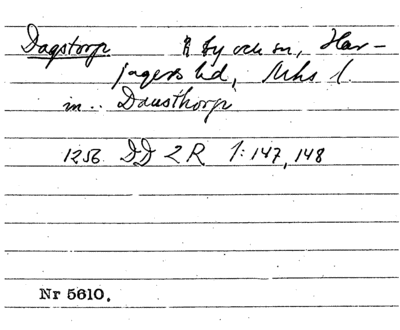 Dagstorp By och sn, Har-
jagers hd, Mhs l.
in.. Dausthorp
1256 DD 2R 1:147, 148
Nr 5610.